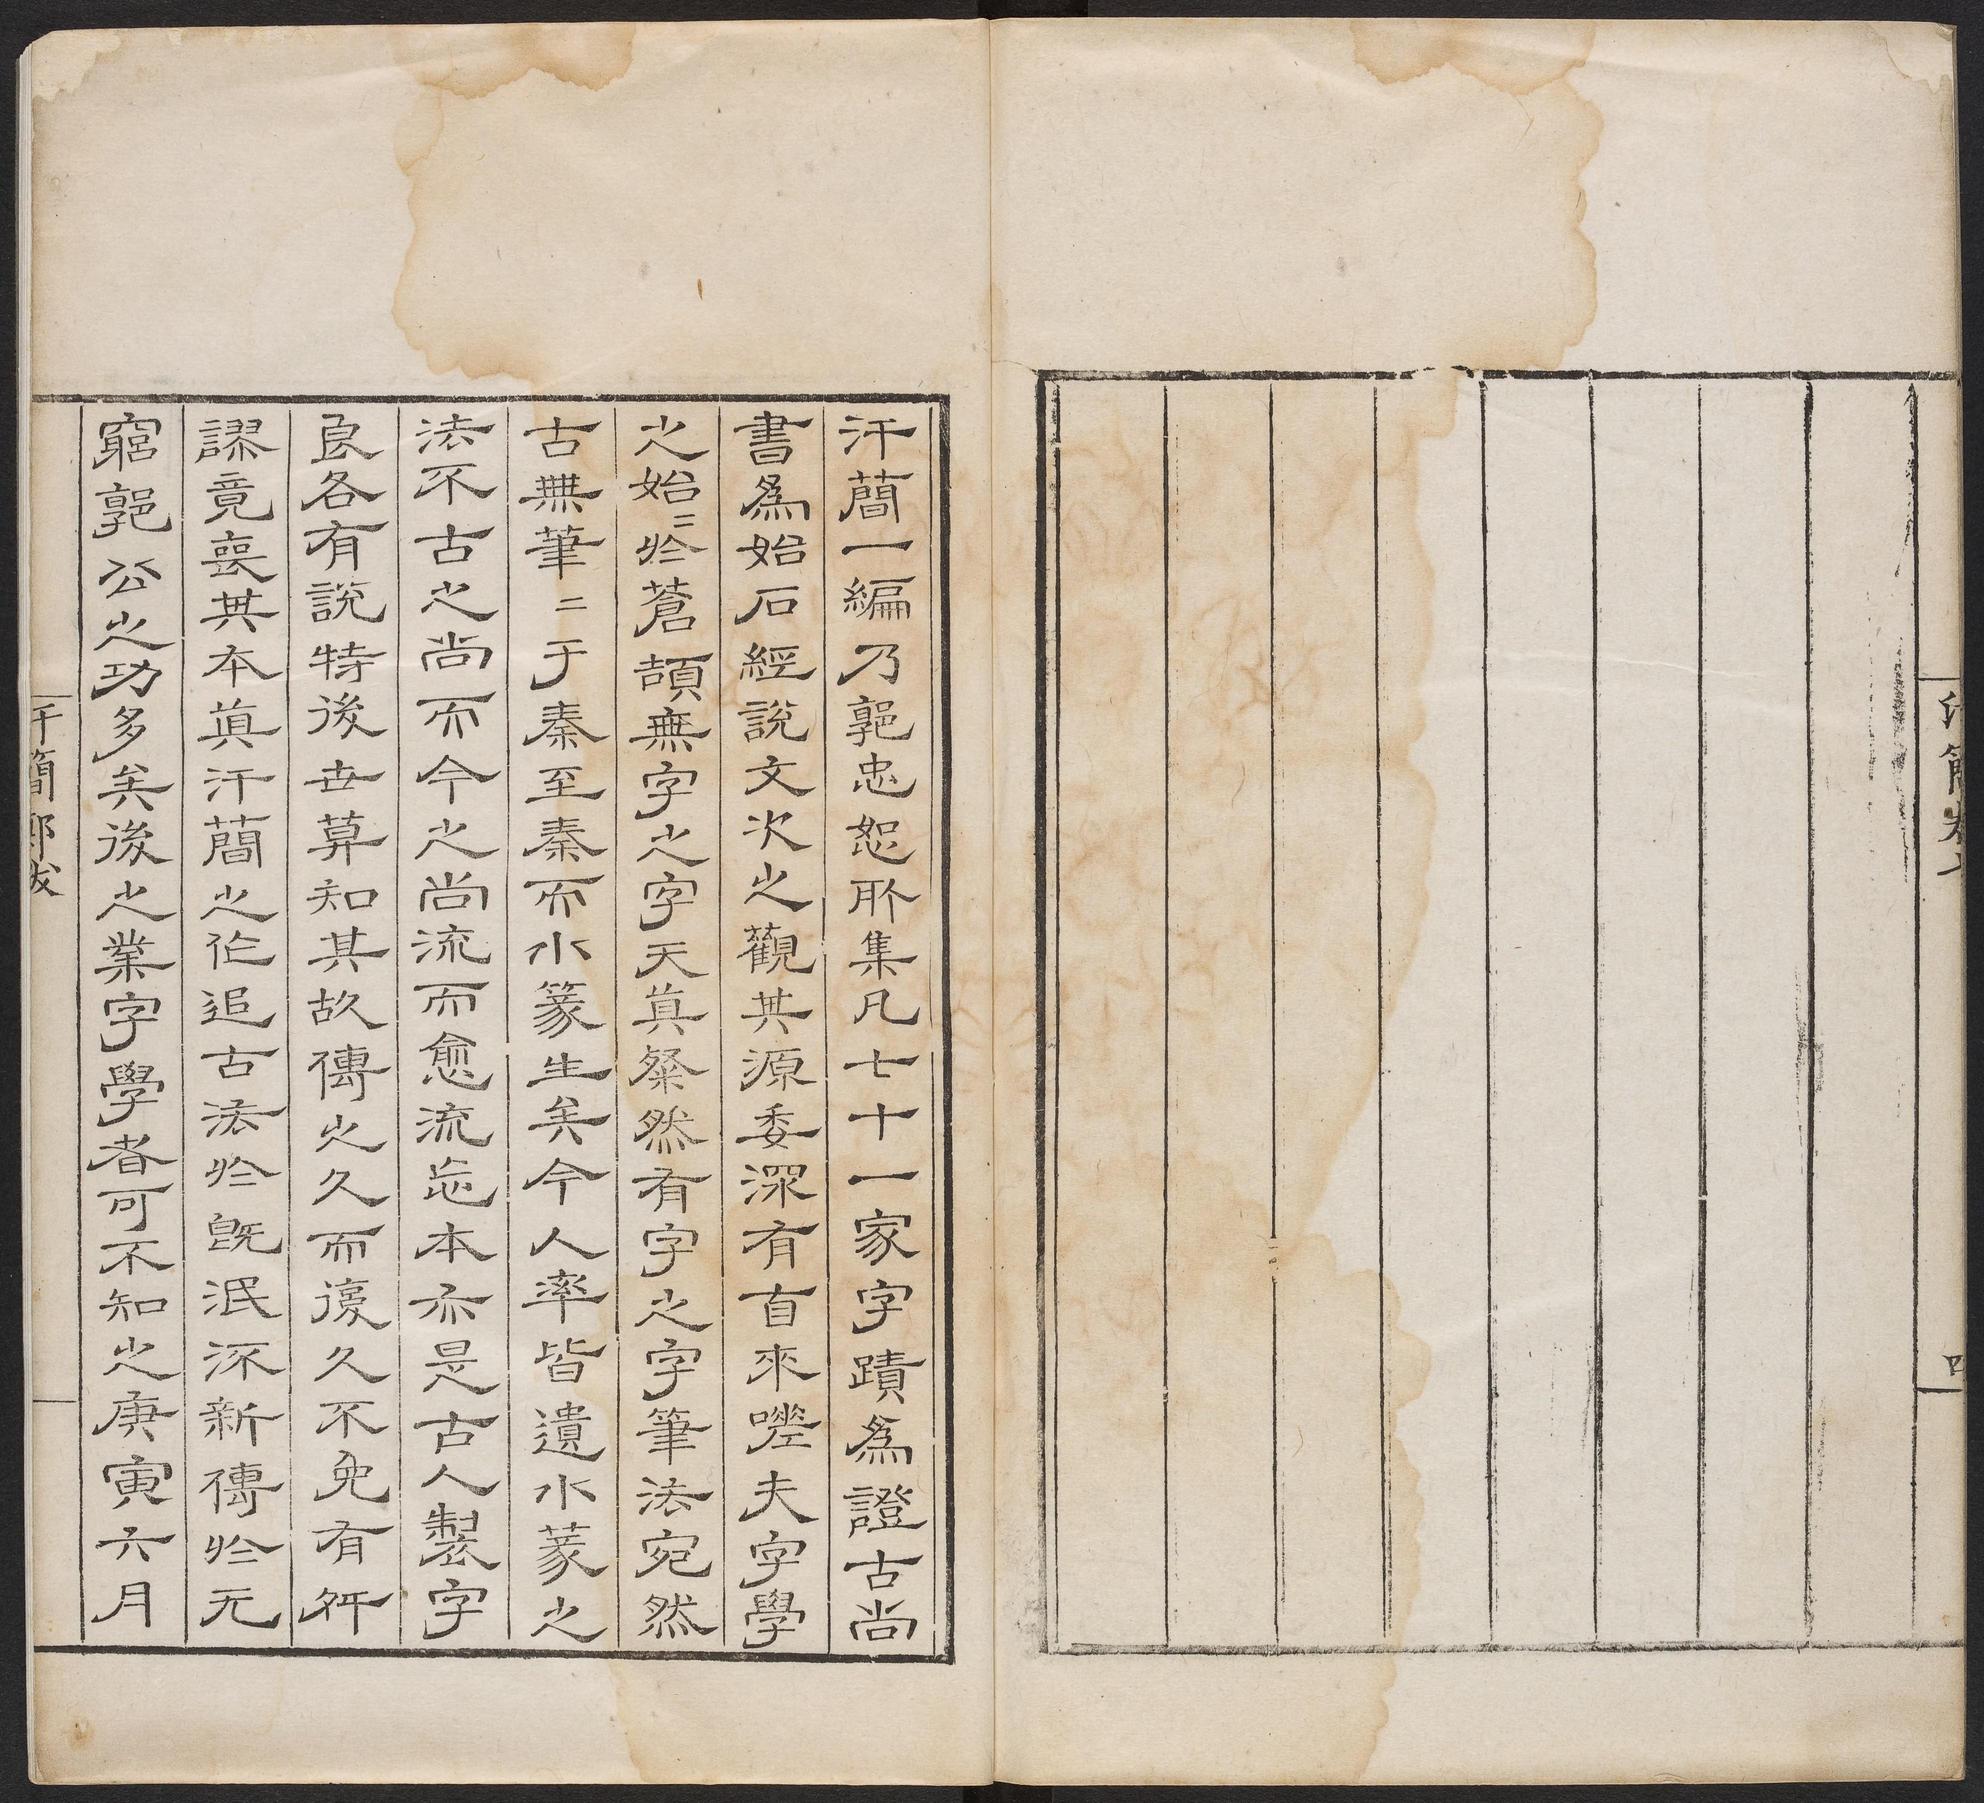 汗簡卷七
四
汗蕳一編乃郭忠恕所集凡七十一家字蹟為證古尚
書為始石經說文次之觀其源委深有自來嗟夫字學
之始〻於蒼頡無字之字天真粲然有字之字筆法宛然
古無筆〻于秦至秦而小篆生矣今人率皆遺小篆之
法不古之尚而今之尚流而愈流忘本亦是古人製字
良各有說特後世莫知其故傳之久而復久不免有舛
謬竟喪其本真汗蕳之作追古法於既泯流新傳於无
窮郭公之功多矣後之業字學者可不知之庚寅六月
汗簡鄭跋